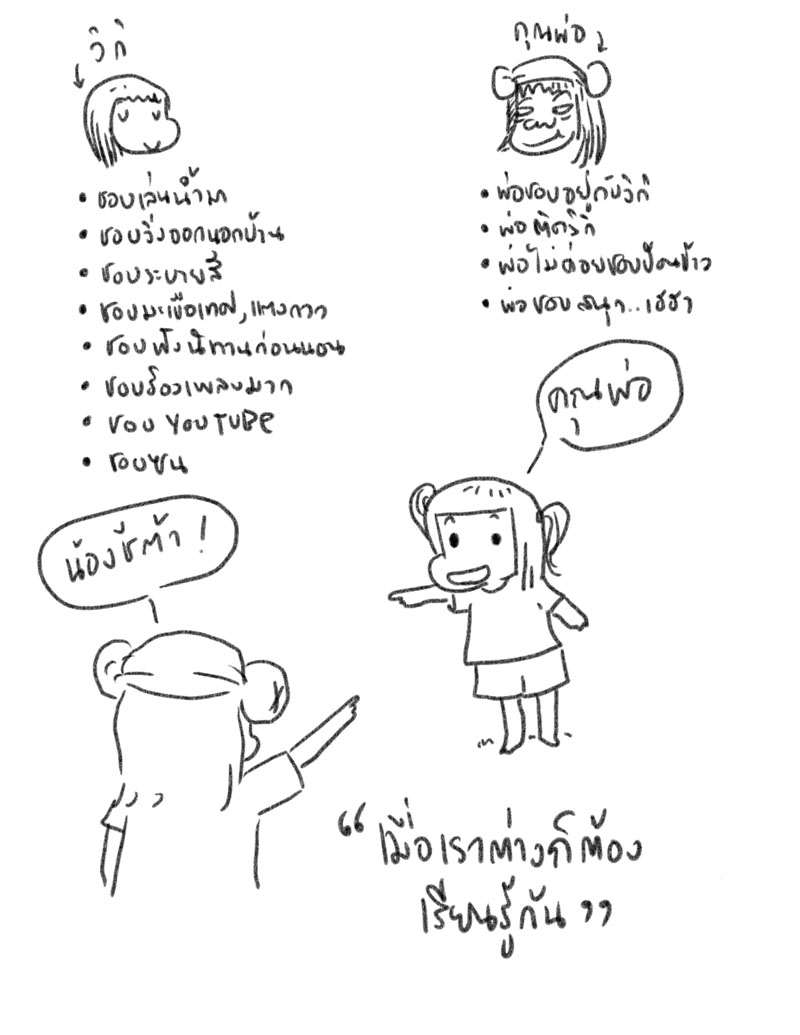 วิกิ
• ชอบเล่นน้ำมาก
• ชอบวิ่งออกนอกบ้าน
• ชอบระบายสี
• ชอบมะเขือเทศ, แตงกวา
• ชอบฟังนิทานก่อนนอน
• ชอบร้องเพลงมาก
• ชอบ YOUTUBE
• ชอบซน
คุณพ่อ
• พ่อชอบอยู่กับวิกิ
• พ่อติดวิกิ
• พ่อไม่ค่อยชอบป้อนข้าว
• พ่อชอบสนุก..เฮฮา
คุณพ่อ
น้องชีต้า!
“เมื่อเราต่างก็ต้อง
เรียนรู้กัน”